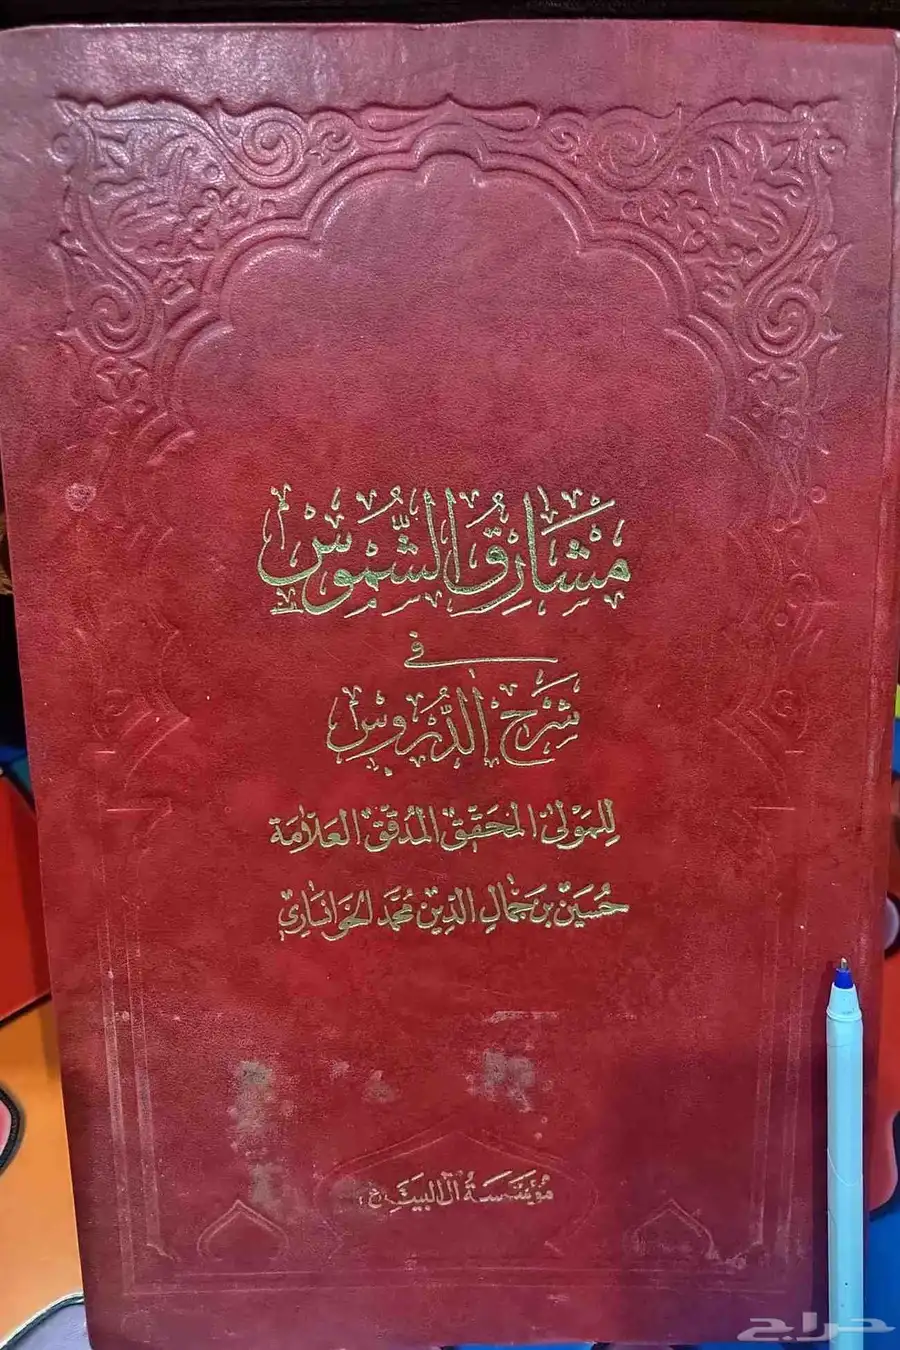 مَشَارِقُ الشُّمُوس
في
شَرْحِ الدُّرُوس
لِلمَولىٰ المحَقِّق المُدَقِّق العَلّامَة
حُسَين بن جَمَال الدِّين مُحَمَّد الخوَانسَاري
مُؤسَّسَةُ آل البَيت ع
حراج